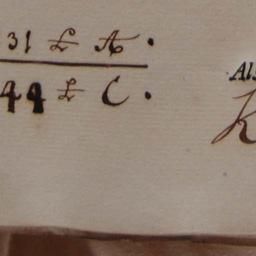 31 ₤ A.
44 ₤ C.
Als
K